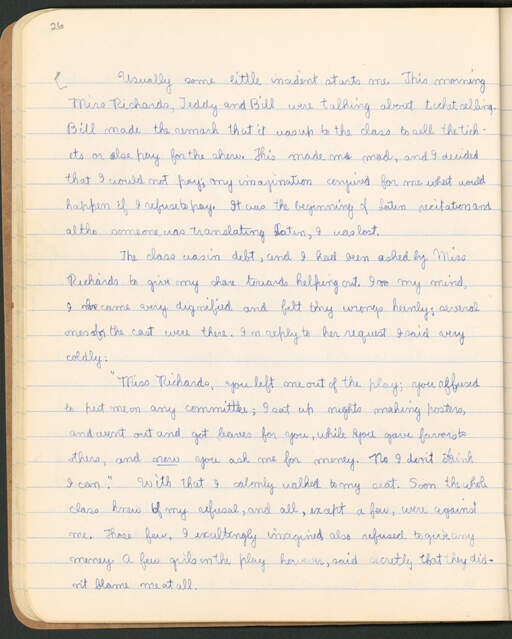 26
Usually some little incident starts me. This morning
Miss Richards, Teddy and Bill were talking about ticket selling.
Bill made the remark that it was up to the class to sell the tick-
ets or else pay for the show. This made me mad, and I decided
that I would not pay; my imagination conjured for me what would
happen if I refuse to pay. It was the beginning of Latin recitation and
altho someone was translating Latin, I was lost.
The class was in debt, and I had been asked by Miss
Richards to give my share towards helping out. In my mind,
I became very dignified and felt my wrongs keenly; several
ones of the cast were there. In reply to her request I said very
coldly:
"Miss Richards, you left me out of the play; you refused
to put me on any committee; I sat up nights making posters,
and went out and got leaves for you, while you gave favors to
others, and now you ask me for money. No I don't think
I can." With that I calmly walked to my seat. Soon the whole
class knew of my refusal, and all, except a few, were against
me. Those few, I exultingly imagined also refused to give any
money. A few girls in the play however, said secretly that they did-
n't blame me at all.